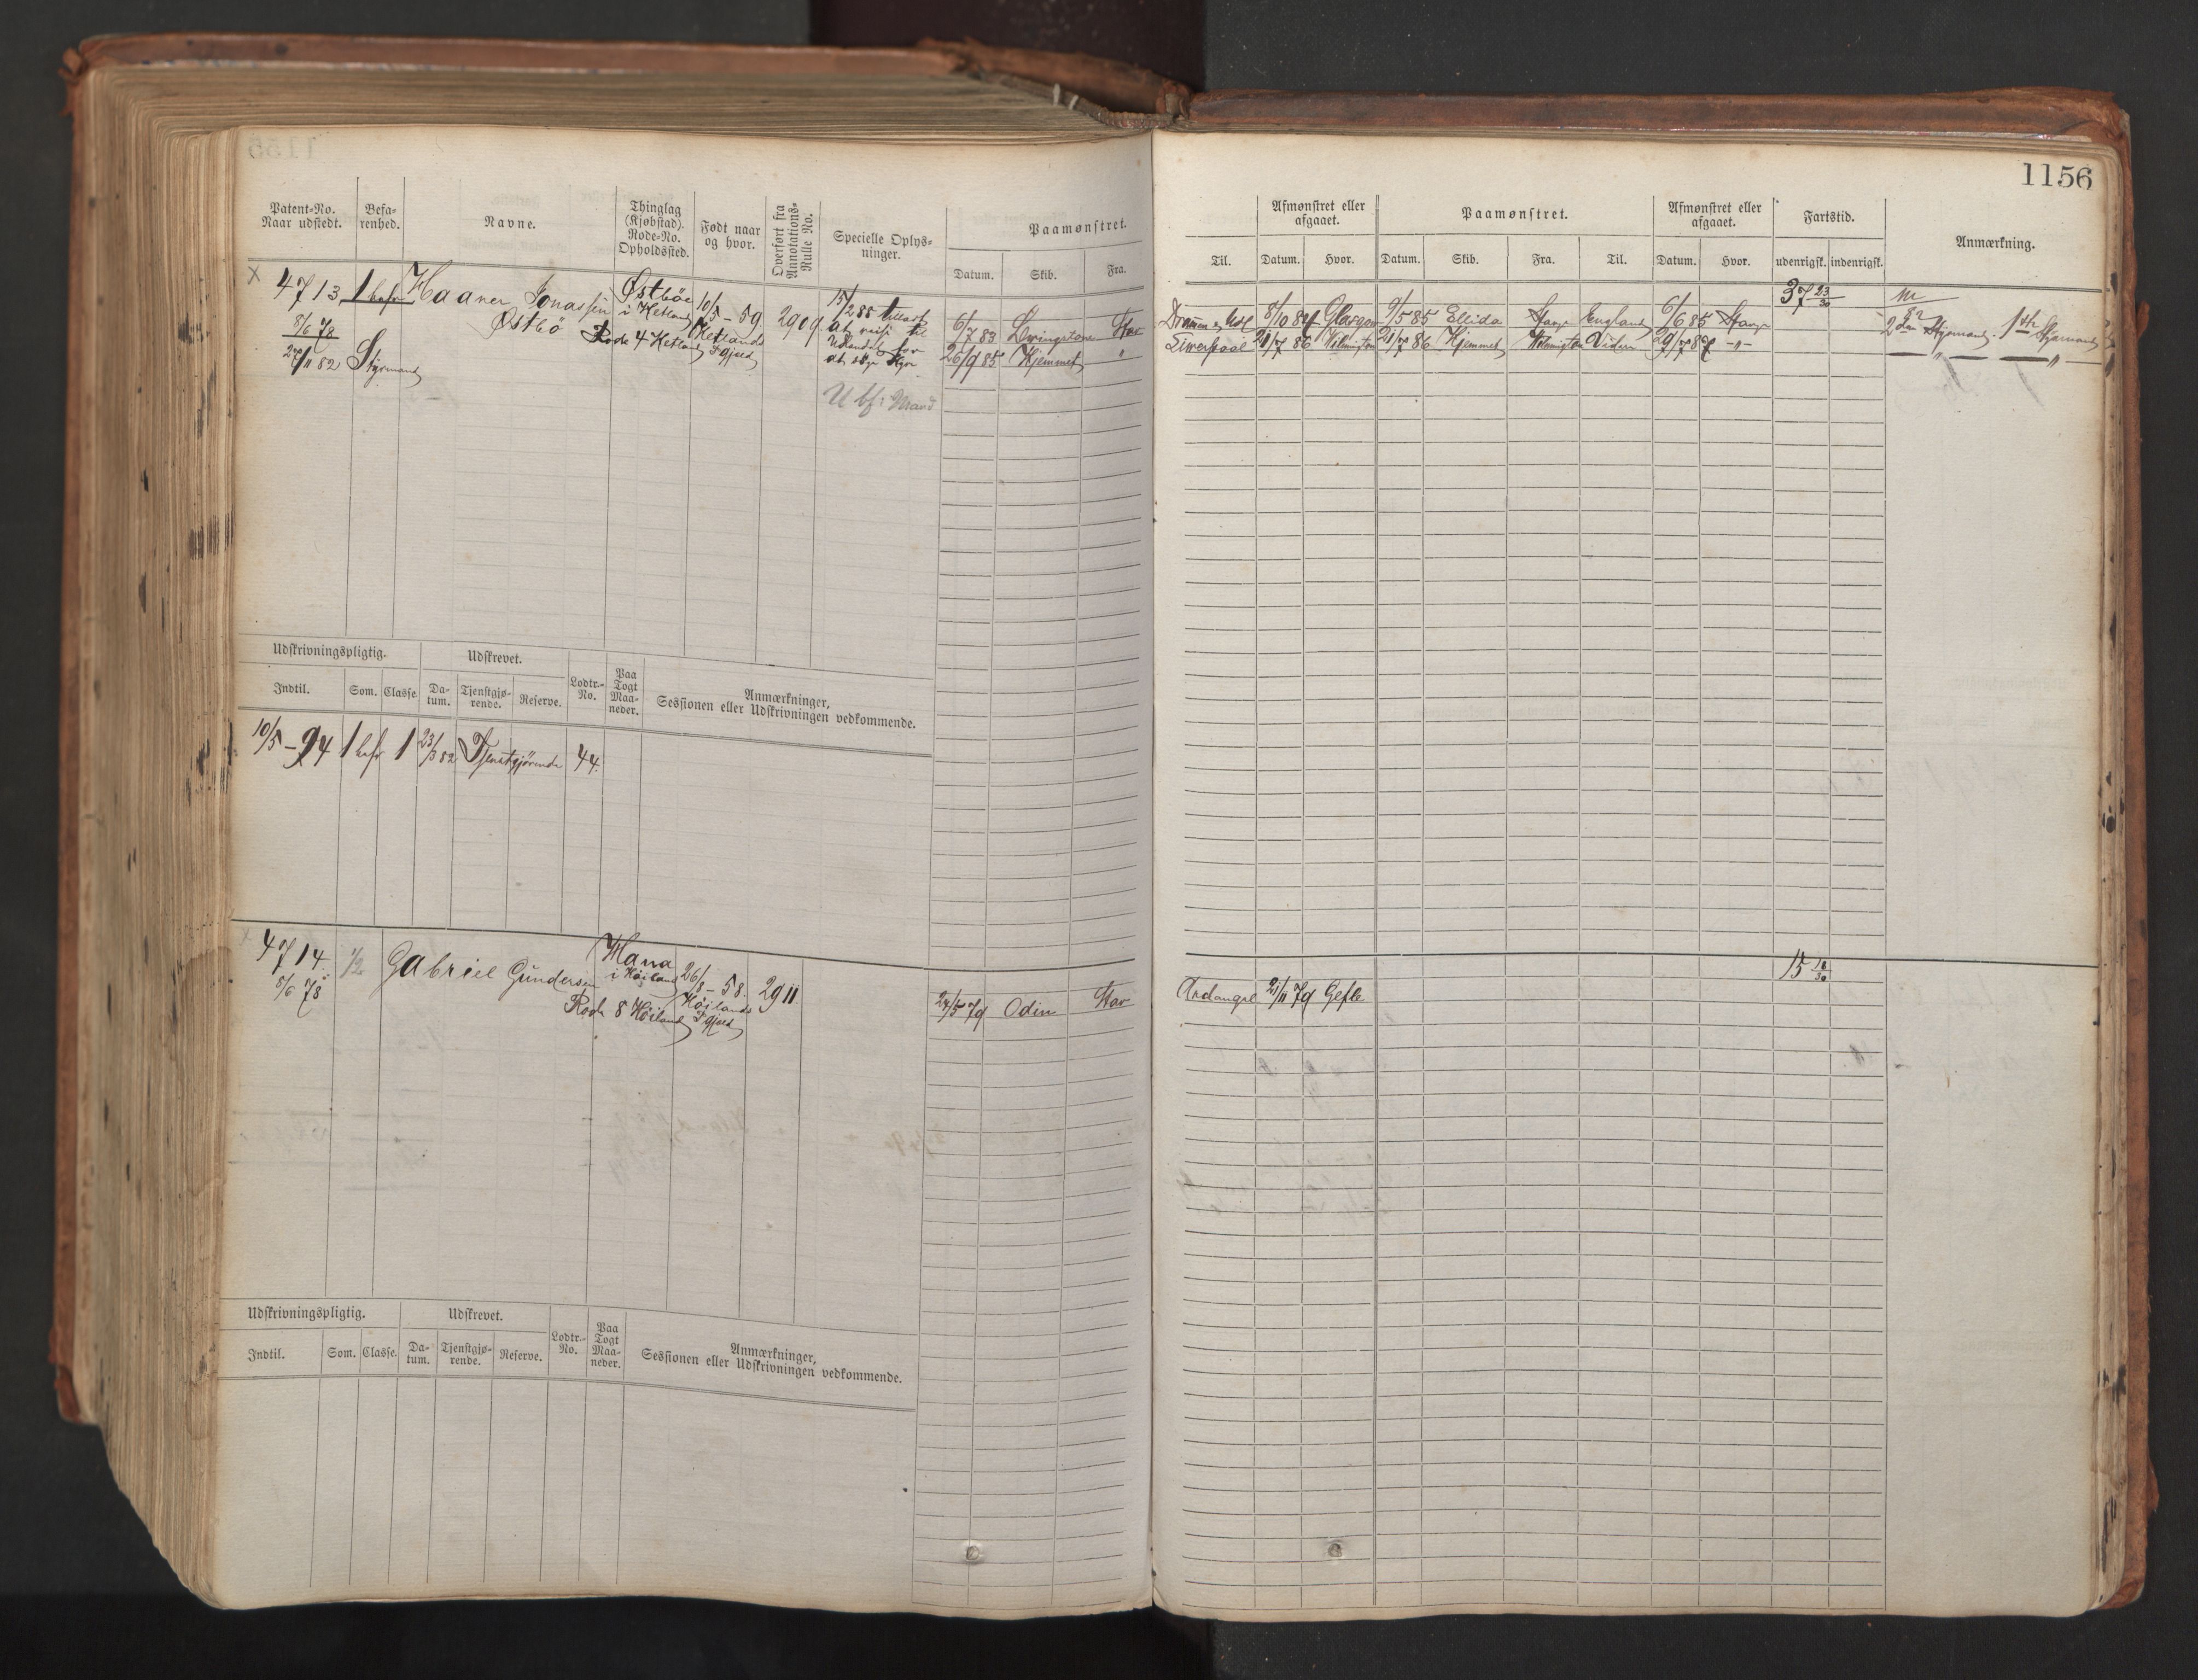 1156
Patent-No. Naar udstedt.
Befa-renhed.
Navne.
Thinglag (Kjøbstad). Rode-No. Opholdssted.
Født naar og hvor.
Overført fra Annotations-Rulle No.
Specielle Oplys-ninger.
Paamønstret.
Datum. Skib. Fra.
Til.
Afmønstret eller afgaaet.
Datum. Hvor.
Paamønstret.
Datum. Skib. Fra. Til.
Afmønstret eller afgaaet.
Datum. Hvor.
Fartstid.
udenrigsk. indenrigsk.
Anmærkning.
4713
8/6 78
27/11 82 Styrmand
1 bef
Haaver Jonassen
Østbö
Østböe
i Hetland
Rode 4 Hetland
10/5-59.
Hetlands
Pgjeld
2909.
15/2 85 tilladt
at reise til
Udlandet for
at
6/7 83 Livingstone Stav
26/9 85 Hjemmet "
8/10 84 Glasgow 9/5 85 Ellida Stavgr England 6/6 85 Stavgr
Liverpool 21/7 86 Wilmington 21/7 86 Hjemmet Wilmington Viden 29/7 87 -"-
37 23/30
2den Styrmand. 1ste Styrmand
Udskrivningspligtig.
Udskrevet.
Indtil. Som. Classe. Da-tum. Tjenstgjø-rende. Reserve.
Lodtr.-No.
Paa Togt Maa-neder.
Anmærkninger,
Sessionen eller Udskrivningen vedkommende.
10/5-94 1 bef 1 23/3 82 Tjenstgjörende 44.
4714.
8/6 78
1/2
Gabriel Gundersen
Hana
i Höiland
Rode 8 Höiland
26/8-58.
Höilands
Pgjeld
2911
24/5 79 Odin Stav
21/11 79 Gefle
15 18/30
Udskrivningspligtig.
Udskrevet.
Indtil. Som. Classe. Da-tum. Tjenstgjø-rende. Reserve.
Lodtr.-No.
Paa Togt Maa-neder.
Anmærkninger,
Sessionen eller Udskrivningen vedkommende.